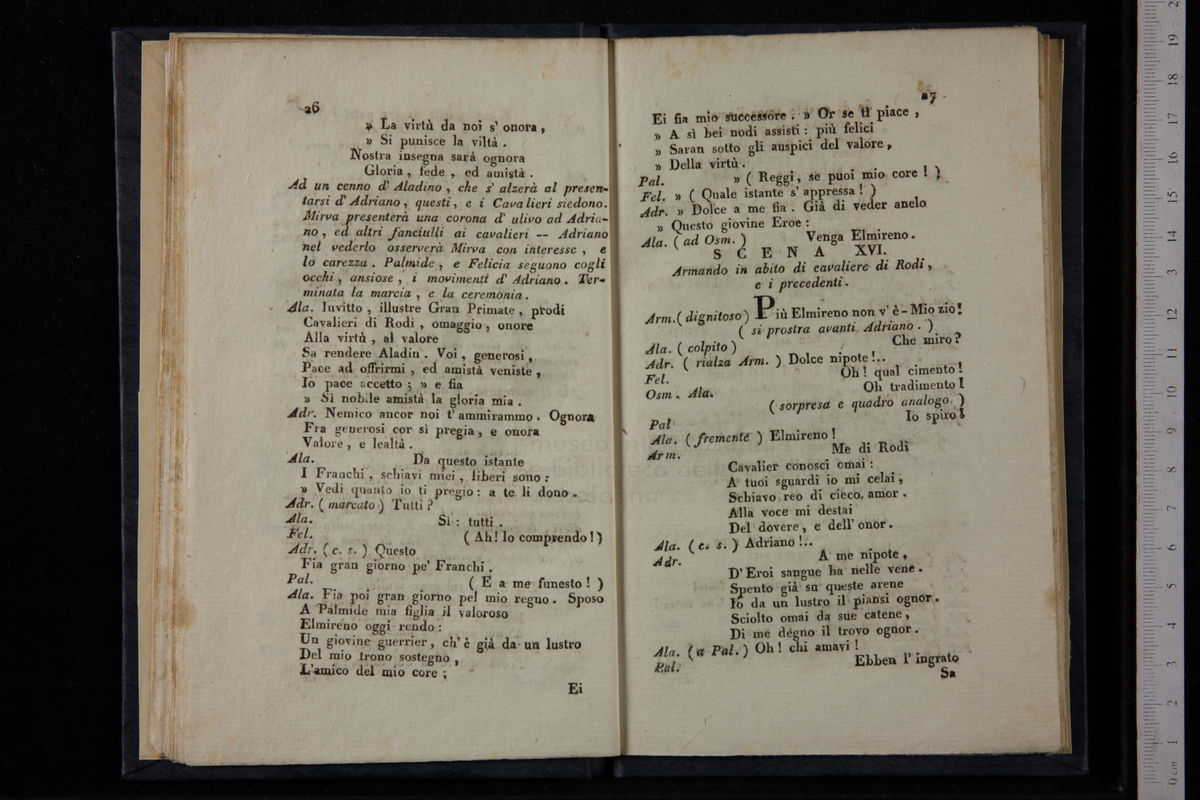 26
» La virtù da noi s' onora,
» Si punisce la viltà.
Nostra insegna sarà ognora
Gloria, fede, ed amistà.
Ad un cenno d' Aladino, che s' alzerà al presen-
tarsi d' Adriano, questi, e i Cavalieri siedono.
Mirva presenterà una corona d' ulivo ad Adria-
no, ed altri fanciulli ai cavalieri -- Adriano
nel vederlo osserverà Mirva con interesse, e
lo carezza. Palmide, e Felicia seguono cogli
occhi, ansiose, i movimenti d' Adriano. Ter-
minata la marcia, e la ceremonia.
Ala. Invitto, illustre Gran Primate, prodi
Cavalieri di Rodi, omaggio, onore
Alla virtù, al valore
Sa rendere Aladin. Voi, generosi,
Pace ad offrirmi, ed amistà veniste,
Io pace accetto; » e fia
» Sì nobile amistà la gloria mia.
Adr. Nemico ancor noi t' ammirammo. Ognora
Fra generosi cor sì pregia, e onora
Valore, e lealtà.
Ala. Da questo istante
I Franchi, schiavi miei, liberi sono:
» Vedi quanto io ti pregio: a te li dono.
Adr. (marcato) Tutti?
Ala. Sì: tutti.
Fel. (Ah! lo comprendo!)
Adr. (c. s.) Questo
Fia gran giorno pe' Franchi.
Pal. (E a me funesto!)
Ala. Fia poi gran giorno pel mio regno. Sposo
A Palmide mia figlia il valoroso
Elmireno oggi rendo:
Un giovine guerrier, ch' è già da un lustro
Del mio trono sostegno,
L'amico del mio core;
Ei
27
Ei fia mio successore. » Or se ti piace,
» A sì bei nodi assisti: più felici
» Saran sotto gli auspici del valore,
» Della virtù.
Pal. » (Reggi, se puoi mio core!)
Fel. » (Quale istante s' appressa!)
Adr. » Dolce a me fia. Già di veder anelo
» Questo giovine Eroe:
Ala. (ad Osm.) Venga Elmireno.
SCENA XVI.
Armando in abito di cavaliere di Rodi,
e i precedenti.
Arm. (dignitoso) Più Elmireno non v' è - Mio zio!
(si prostra avanti Adriano.)
Ala. (colpito) Che miro?
Adr. (rialza Arm.) Dolce nipote!..
Fel. Oh! qual cimento!
Osm. Ala. Oh tradimento!
(sorpresa e quadro analogo.)
Pal Io spiro!
Ala. (fremente) Elmireno!
Arm. Me di Rodi
Cavalier conosci omai:
A' tuoi sguardi io mi celai,
Schiavo reo di cieco amor.
Alla voce mi destai
Del dovere, e dell' onor.
Ala. (c. s.) Adriano!..
Adr. A me nipote,
D' Eroi sangue ha nelle vene.
Spento già su queste arene
Io da un lustro il piansi ognor.
Sciolto omai da sue catene,
Di me degno il trovo ognor.
Ala. (a Pal.) Oh! chi amavi!
Pal. Ebben l' ingrato
Sa